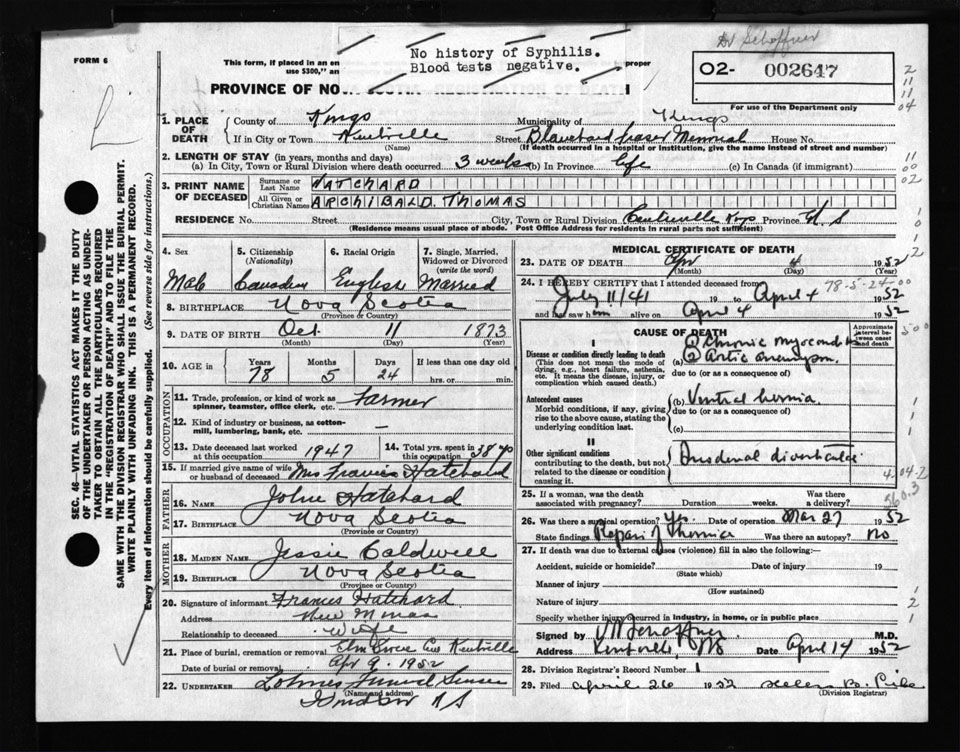 Dr Schaffner
No history of Syphilis.
Blood tests negative.
FORM 6
This form, if placed in an en
use $300," an
proper
PROVINCE OF NO
02- 002647
For use of the Department only
1. PLACE OF DEATH
County of Kings Municipality of Kings
If in City or Town Kentville Street Blanchard Fraser Memorial House No.
(Name) (If death occurred in a hospital or institution, give the name instead of street and number)
2. LENGTH OF STAY (in years, months and days)
(a) In City, Town or Rural Division where death occurred 3 weeks (b) In Province Life (c) In Canada (if immigrant)
3. PRINT NAME OF DECEASED
Surname or Last Name HATCHARD
All Given or Christian Names ARCHIBALD THOMAS
RESIDENCE No. Street City, Town or Rural Division Centreville Province N.S
(Residence means usual place of abode. Post Office Address for residents in rural parts not sufficient)
4. Sex Male
5. Citizenship (Nationality) Canadian
6. Racial Origin English
7. Single, Married, Widowed or Divorced (write the word) Married
8. BIRTHPLACE Nova Scotia
(Province or Country)
9. DATE OF BIRTH Oct. 11 1873
(Month) (Day) (Year)
10. AGE in Years 78 Months 5 Days 24 If less than one day old hrs. or min.
OCCUPATION
11. Trade, profession, or kind of work as spinner, teamster, office clerk, etc. Farmer
12. Kind of industry or business, as cotton-mill, lumbering, bank, etc. —
13. Date deceased last worked at this occupation 1947
14. Total yrs. spent in this occupation 38 40
15. If married give name of wife or husband of deceased Mrs Francis Hatchard
FATHER
16. NAME John Hatchard
17. BIRTHPLACE Nova Scotia
(Province or Country)
MOTHER
18. MAIDEN NAME Jessie Caldwell
19. BIRTHPLACE Nova Scotia
(Province or Country)
20. Signature of informant Frances Hatchard
Address New Minas
Relationship to deceased Wife
21. Place of burial, cremation or removal Elm Grove Kentville
Date of burial or removal Apr 9. 1952
22. UNDERTAKER
(Name and address)
Windsor N S
MEDICAL CERTIFICATE OF DEATH
23. DATE OF DEATH Apr 4 1952
(Month) (Day) (Year)
78-5-24-00
24. I HEREBY CERTIFY that I attended deceased from
July 11/41 19 to April 4 1952
and last saw him alive on April 4 1952
CAUSE OF DEATH
Approximate interval between onset and death
I
Disease or condition directly leading to death
(This does not mean the mode of dying, e.g., heart failure, asthenia, etc. It means the disease, injury, or complication which caused death.)
(a) (1) Chronic
(2)
due to (or as a consequence of)
Antecedent causes
Morbid conditions, if any, giving rise to the above cause, stating the underlying condition last.
(b) Ventral hernia
due to (or as a consequence of)
(c)
II
Other significant conditions
contributing to the death, but not related to the disease or condition causing it.
Duodenal diverticula
25. If a woman, was the death associated with pregnancy? Duration weeks. Was there a delivery?
26. Was there a surgical operation? Yes. Date of operation Mar 27 1952
State findings Repair of hernia Was there an autopsy? No
27. If death was due to external causes (violence) fill in also the following:—
Accident, suicide or homicide? Date of injury 19
(State which)
Manner of injury
(How sustained)
Nature of injury
Specify whether injury occurred in industry, in home, or in public place
Signed by M.D.
Address Kentville, NS Date April 14 1952
28. Division Registrar's Record Number 1
29. Filed April 26 1952 Helen B.
(Division Registrar)
SEC. 46—VITAL STATISTICS ACT MAKES IT THE DUTY
OF THE UNDERTAKER OR PERSON ACTING AS UNDER-
TAKER TO OBTAIN ALL THE PARTICULARS REQUIRED
IN THE "REGISTRATION OF DEATH" AND TO FILE THE
SAME WITH THE DIVISION REGISTRAR WHO SHALL ISSUE THE BURIAL PERMIT.
WRITE PLAINLY WITH UNFADING INK. THIS IS A PERMANENT RECORD.
Every item of information should be carefully supplied. (See reverse side for instructions.)